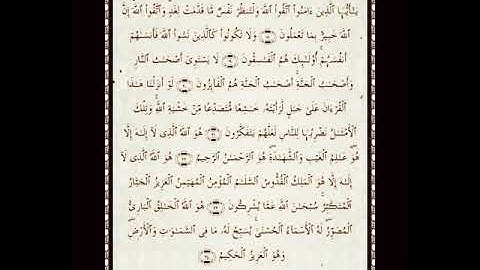 يَٰٓأَيُّهَا ٱلَّذِينَ ءَامَنُوا۟ ٱتَّقُوا۟ ٱللَّهَ وَلْتَنظُرْ نَفْسٌ مَّا قَدَّمَتْ لِغَدٍ وَٱتَّقُوا۟ ٱللَّهَ إِنَّ
ٱللَّهَ خَبِيرٌۢ بِمَا تَعْمَلُونَ ۝ وَلَا تَكُونُوا۟ كَٱلَّذِينَ نَسُوا۟ ٱللَّهَ فَأَنسَىٰهُمْ
أَنفُسَهُمْ أُو۟لَٰٓئِكَ هُمُ ٱلْفَٰسِقُونَ ۝ لَا يَسْتَوِىٓ أَصْحَٰبُ ٱلنَّارِ
وَأَصْحَٰبُ ٱلْجَنَّةِ أَصْحَٰبُ ٱلْجَنَّةِ هُمُ ٱلْفَآئِزُونَ ۝ لَوْ أَنزَلْنَا هَٰذَا
ٱلْقُرْءَانَ عَلَىٰ جَبَلٍ لَّرَأَيْتَهُۥ خَٰشِعًا مُّتَصَدِّعًا مِّنْ خَشْيَةِ ٱللَّهِ وَتِلْكَ
ٱلْأَمْثَٰلُ نَضْرِبُهَا لِلنَّاسِ لَعَلَّهُمْ يَتَفَكَّرُونَ ۝ هُوَ ٱللَّهُ ٱلَّذِى لَآ إِلَٰهَ إِلَّا
هُوَ عَٰلِمُ ٱلْغَيْبِ وَٱلشَّهَٰدَةِ هُوَ ٱلرَّحْمَٰنُ ٱلرَّحِيمُ ۝ هُوَ ٱللَّهُ ٱلَّذِى لَآ
إِلَٰهَ إِلَّا هُوَ ٱلْمَلِكُ ٱلْقُدُّوسُ ٱلسَّلَٰمُ ٱلْمُؤْمِنُ ٱلْمُهَيْمِنُ ٱلْعَزِيزُ ٱلْجَبَّارُ
ٱلْمُتَكَبِّرُ سُبْحَٰنَ ٱللَّهِ عَمَّا يُشْرِكُونَ ۝ هُوَ ٱللَّهُ ٱلْخَٰلِقُ ٱلْبَارِئُ
ٱلْمُصَوِّرُ لَهُ ٱلْأَسْمَآءُ ٱلْحُسْنَىٰ يُسَبِّحُ لَهُۥ مَا فِى ٱلسَّمَٰوَٰتِ وَٱلْأَرْضِ
وَهُوَ ٱلْعَزِيزُ ٱلْحَكِيمُ ۝